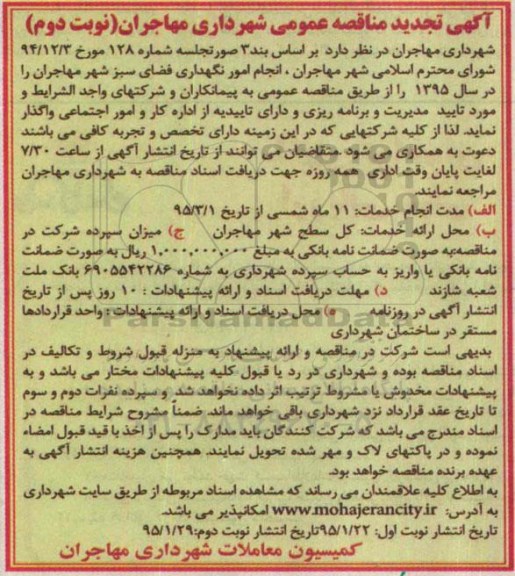 آگهی تجدید مناقصه عمومی شهرداری مهاجران(نوبت دوم)
شهرداری مهاجران در نظر دارد بر اساس بند۳ صورتجلسه شماره ۱۲۸ مورخ ۹۴/۱۲/۳
شورای محترم اسلامی شهر مهاجران ، انجام امور نگهداری فضای سبز شهر مهاجران را
در سال ۱۳۹۵ را از طریق مناقصه عمومی به پیمانکاران و شرکتهای واجد الشرایط و
مورد تایید مدیریت و برنامه ریزی و دارای تاییدیه از اداره کار و امور اجتماعی واگذار
نماید. لذا از کلیه شرکتهایی که در این زمینه دارای تخصص و تجربه کافی می باشند
دعوت به همکاری می شود. متقاضیان می توانند از تاریخ انتشار آگهی از ساعت ۷/۳۰
لغایت پایان وقت اداری همه روزه جهت دریافت اسناد مناقصه به شهرداری مهاجران
مراجعه نمایند.
الف) مدت انجام خدمات: ۱۱ ماه شمسی از تاریخ ۹۵/۳/۱
ب) محل ارائه خدمات: کل سطح شهر مهاجران ج) میزان سپرده شرکت در
مناقصه:به صورت ضمانت نامه بانکی به مبلغ ۱,۰۰۰,۰۰۰,۰۰۰ ریال به صورت ضمانت
نامه بانکی یا واریز به حساب سپرده شهرداری به شماره ۶۹۰۵۵۴۲۲۸۶ بانک ملت
شعبه شازند د) مهلت دریافت اسناد و ارائه پیشنهادات : ۱۰ روز پس از تاریخ
انتشار آگهی در روزنامه ه) محل دریافت اسناد و ارائه پیشنهادات : واحد قراردادها
مستقر در ساختمان شهرداری
بدیهی است شرکت در مناقصه و ارائه پیشنهاد به منزله قبول شروط و تکالیف در
اسناد مناقصه بوده و شهرداری در رد یا قبول کلیه پیشنهادات مختار می باشد و به
پیشنهادات مخدوش یا مشروط ترتیب اثر داده نخواهد شد و سپرده نفرات دوم و سوم
تا تاریخ عقد قرارداد نزد شهرداری باقی خواهد ماند. ضمناً مشروح شرایط مناقصه در
اسناد مندرج می باشد که شرکت کنندگان باید مدارک را پس از اخذ با قید قبول امضاء
نموده و در پاکتهای لاک و مهر شده تحویل نمایند. همچنین هزینه انتشار آگهی به
عهده برنده مناقصه خواهد بود.
به اطلاع کلیه علاقمندان می رساند که مشاهده اسناد مربوطه از طریق سایت شهرداری
به آدرس: www.mohajerancity.ir امکانپذیر می باشد.
تاریخ انتشار نوبت اول: ۹۵/۱/۲۲تاریخ انتشار نوبت دوم:۹۵/۱/۲۹
کمیسیون معاملات شهرداری مهاجران